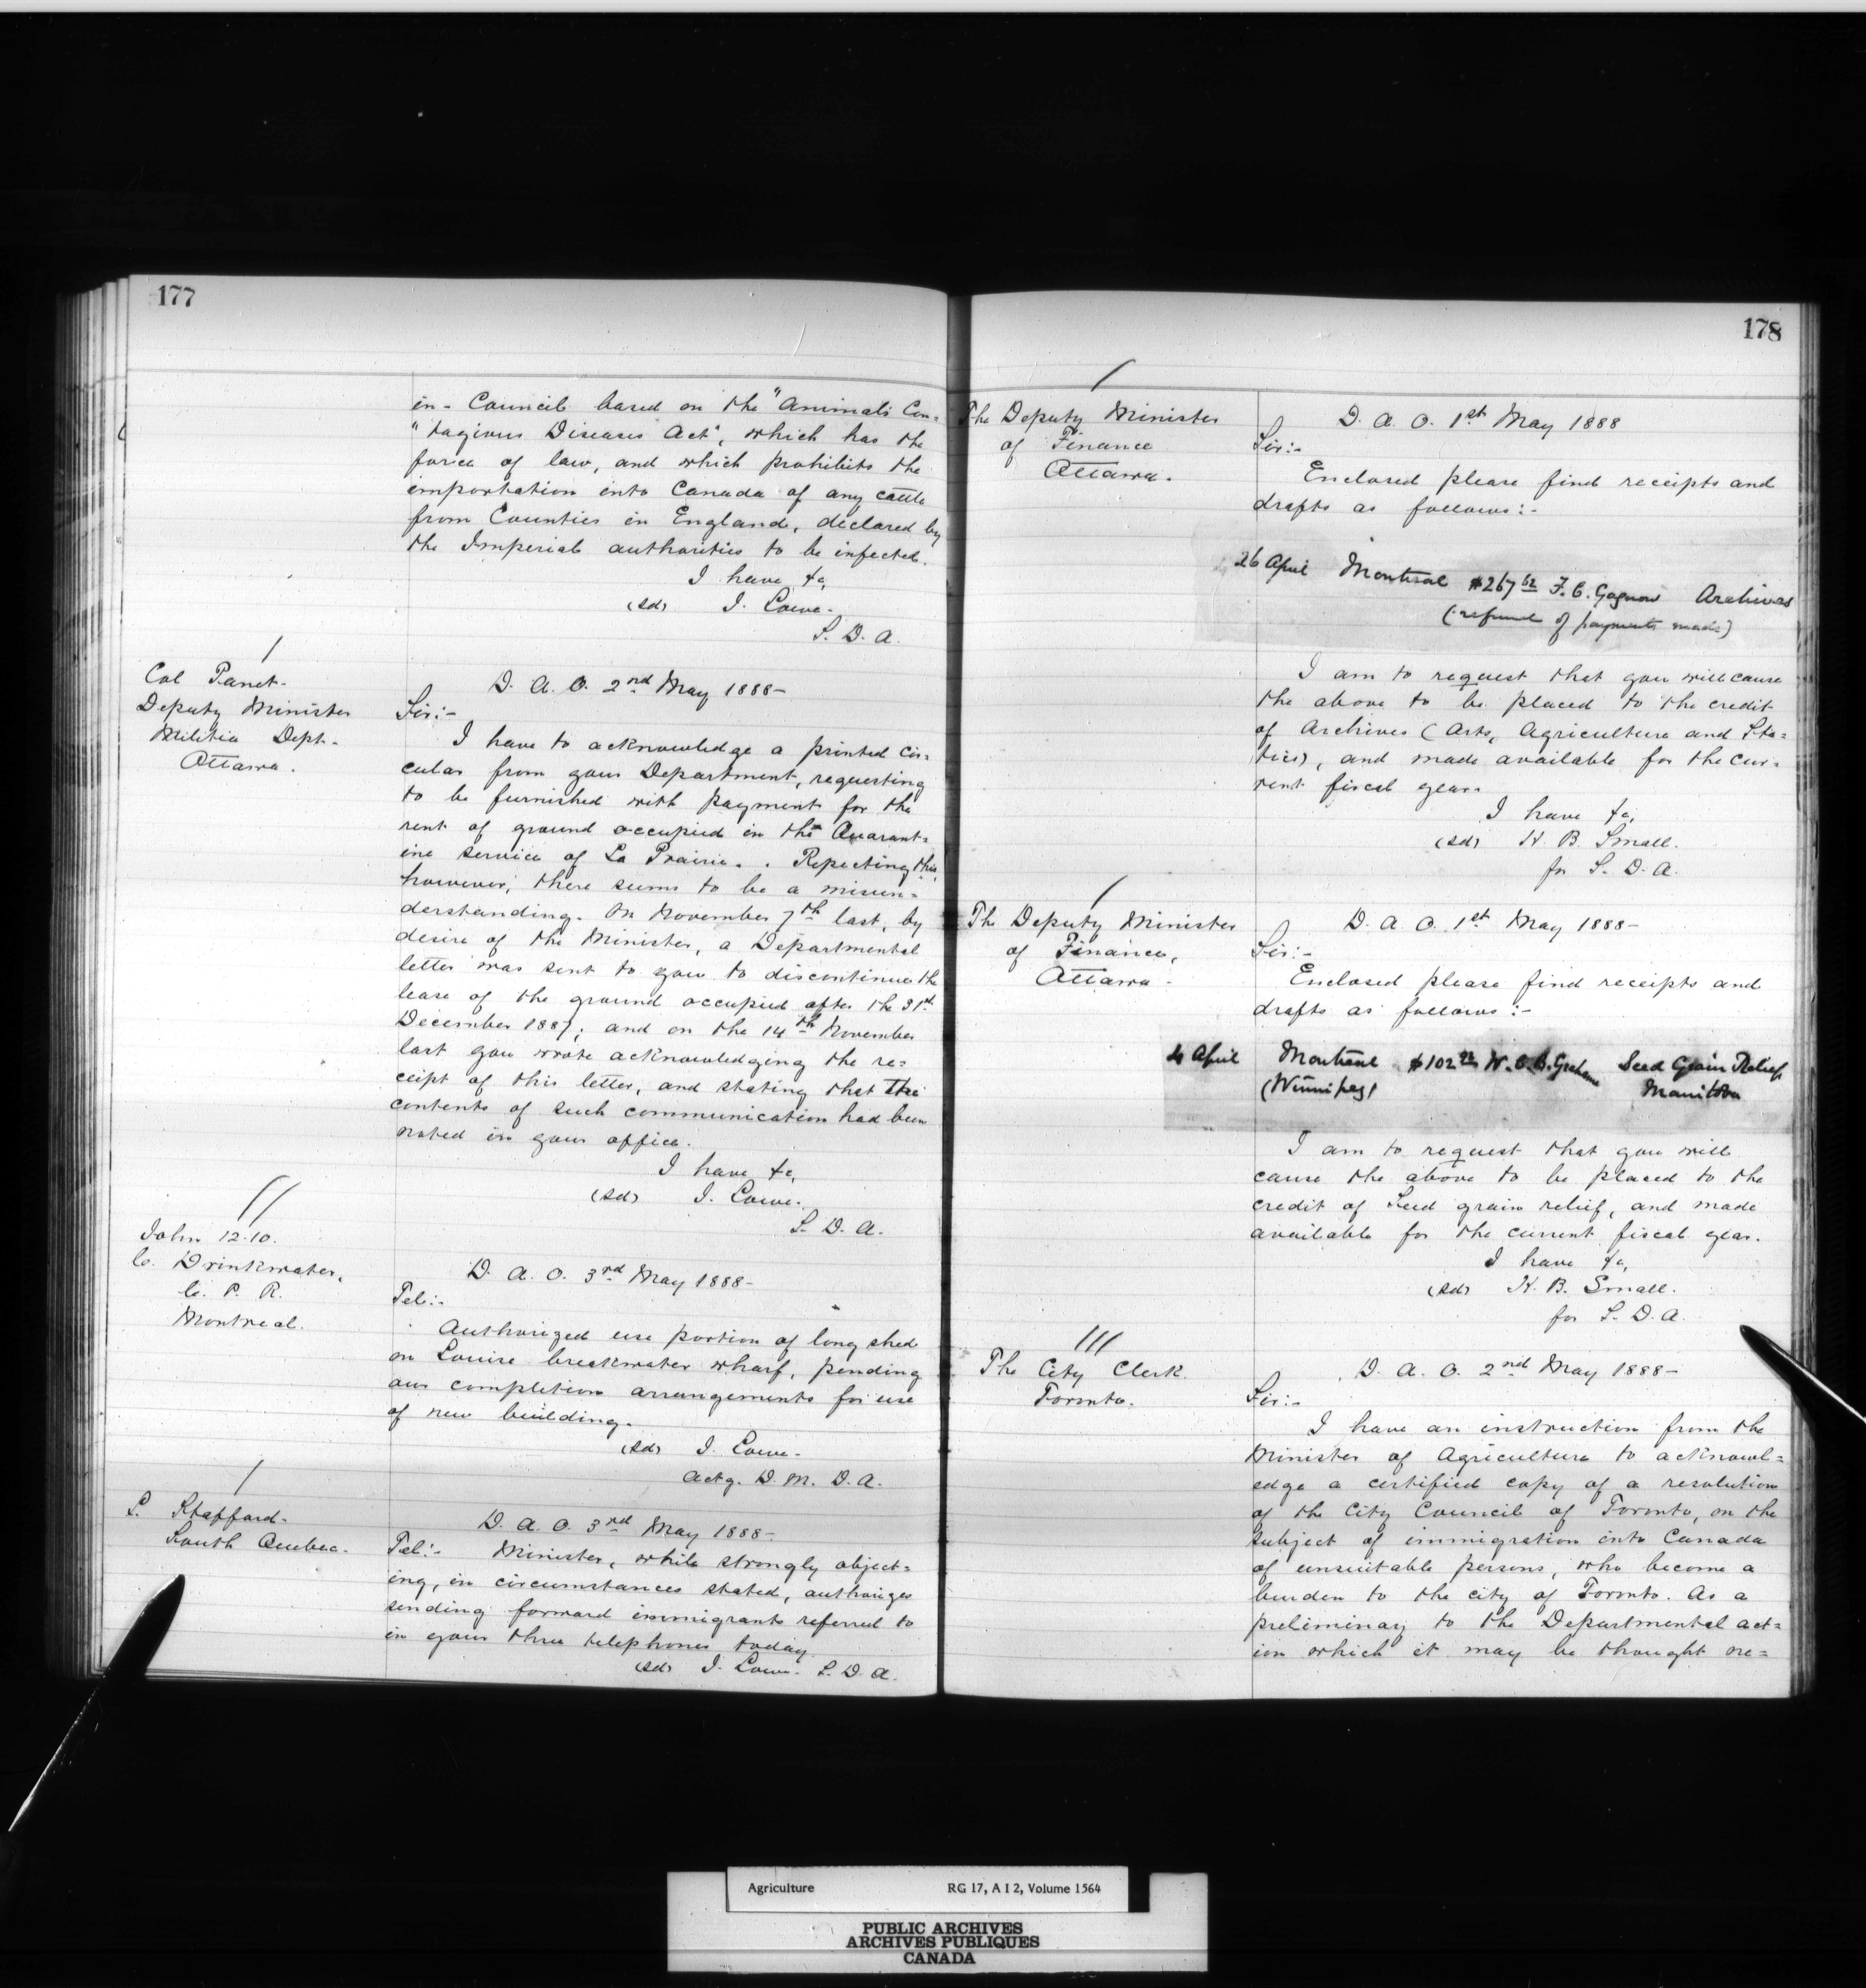 177
in- Council based on the "Animals Con=
"tagious Diseases Act", which has the
force of law, and which prohibits the
importation into Canada of any cattle
from Counties in England, declared by
the Imperial authorities to be infected.
I have &c,
(sd) J. Lowe.
S. D. A.
Col Panet.
Deputy Minister
Militia Dept.
Ottawa.
D. A. O. 2nd May 1888-
Sir:-
I have to acknowledge a printed cir=
cular from your Department, requesting
to be furnished with payment for the
rent of ground occupied in the Quarant=
ine service of La Prairie. Repecting this,
however, there seems to be a misun=
derstanding. On November 7th last, by
desire of the Minister, a Departmental
letter was sent to you to discontinue the
lease of the ground occupied after the 31st
December 1887; and on the 14th November
last you wrote acknowledging the re=
ceipt of this letter, and stating that the
contents of such communication had been
noted in your office.
I have &c,
(sd) J. Lowe.
S. D. A.
John 12.10.
C. Drinkwater,
C. P. R.
Montreal.
D. A. O. 3rd May 1888-
Tel:-
Authorized use portion of long shed
on Louise breakwater wharf, pending
our completion arrangements for use
of new building.
(sd) J. Lowe.
Actg. D. M. D. A.
L. Stafford.
South Quebec.
D. A. O. 3rd May 1888-
Tel:- Minister, while strongly object=
ing, in circumstances stated, authorizes
sending forward immigrants referred to
in your three telephones today.
(sd) J. Lowe. S. D. A.
178
The Deputy Minister
of Finance
Ottawa.
D. A. O. 1st May 1888
Sir:-
Enclosed please find receipts and
drafts as follows:-
26 April Montreal $267 62 F. C. Gagnon Archives
(refund of payments made)
I am to request that you will cause
the above to be placed to the credit
of Archives (Arts, Agriculture and Sta=
tics), and made available for the cur=
rent fiscal year.
I have &c,
(sd) H. B. Small.
for S. D. A.
The Deputy Minister
of Finance,
Ottawa.
D. A. O. 1st May 1888-
Sir:-
Enclosed please find receipts and
drafts as follows:-
April Montreal $102 W. C. B. Grahame Seed Grain Relief
(Winnipeg) Manitoba
I am to request that you will
cause the above to be placed to the
credit of Seed grain relief, and made
available for the current fiscal year.
I have &c,
(sd) H. B. Small.
for S. D. A.
The City Clerk
Toronto.
D. A. O. 2nd May 1888-
Sir:-
I have an instruction from the
Minister of Agriculture to acknowl=
edge a certified copy of a resolution
of the City Council of Toronto, on the
subject of immigration into Canada
of unsuitable persons, who become a
burden to the city of Toronto. As a
preliminary to the Departmental act=
ion which it may be thought ne=
Agriculture RG 17, A I 2, Volume 1564
PUBLIC ARCHIVES
ARCHIVES PUBLIQUES
CANADA